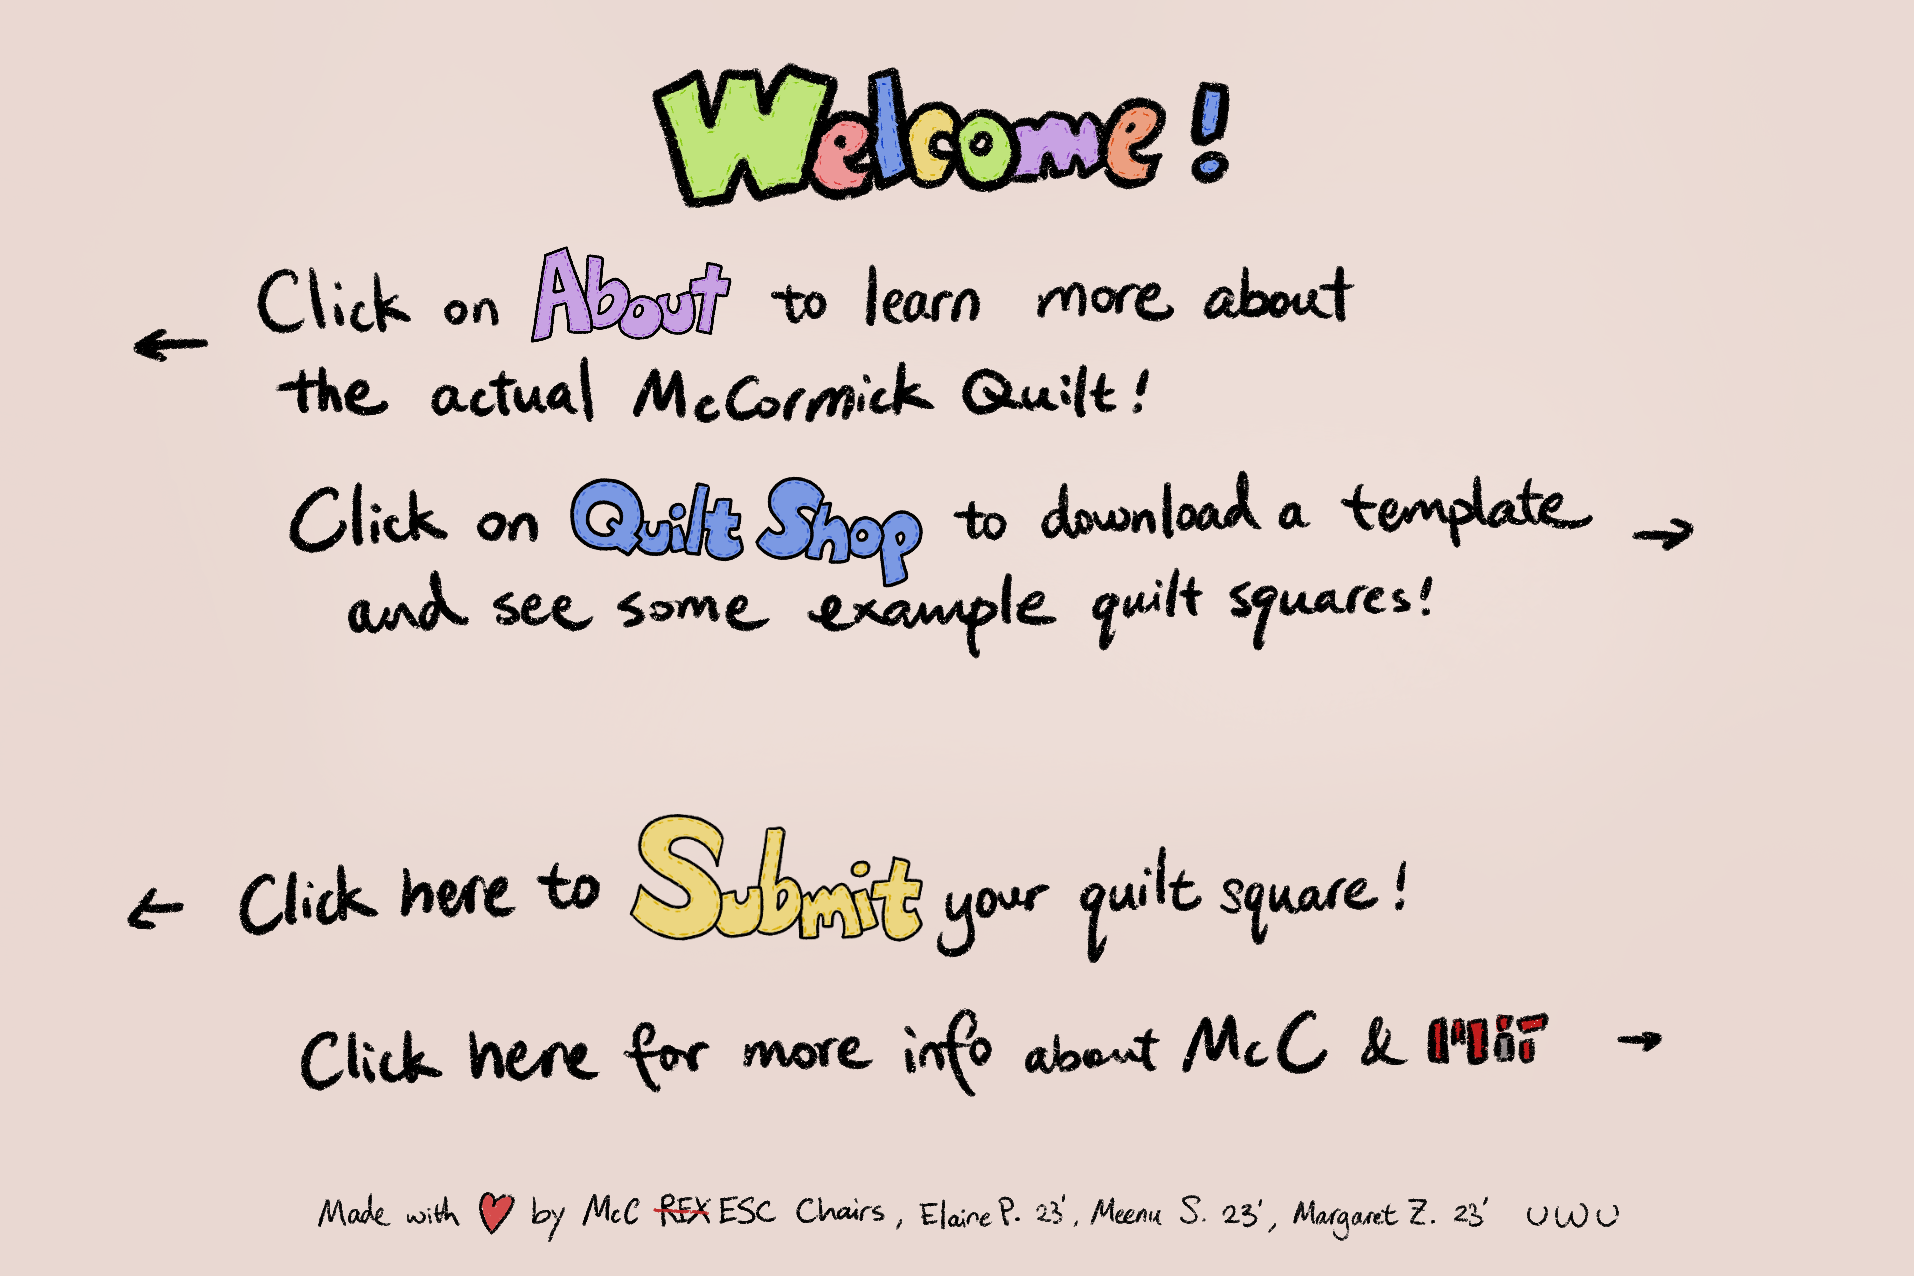 Welcome!
Click on About to learn more about
the actual McCormick Quilt!
Click on Quilt Shop to download a template
and see some example quilt squares!
Click here to Submit your quilt square!
Click here for more info about McC & MIT
Made with ❤ by McC REX ESC Chairs, Elaine P. 23', Meenu S. 23', Margaret Z. 23' UWU